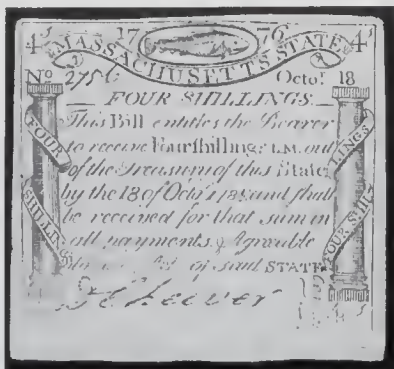 4s 17 76 4s
MASSACHUSETTS STATE
No 275 Octor 18
FOUR SHILLINGS
This Bill entitles the Bearer
to receive Four shillings L.M. out
of the Treasury of this State
by the 18 of Octr. and shall
be received for that sum in
all payments, Agreable
to of said STATE
FOUR
SHILLINGS
FOUR SHIL
LINGS